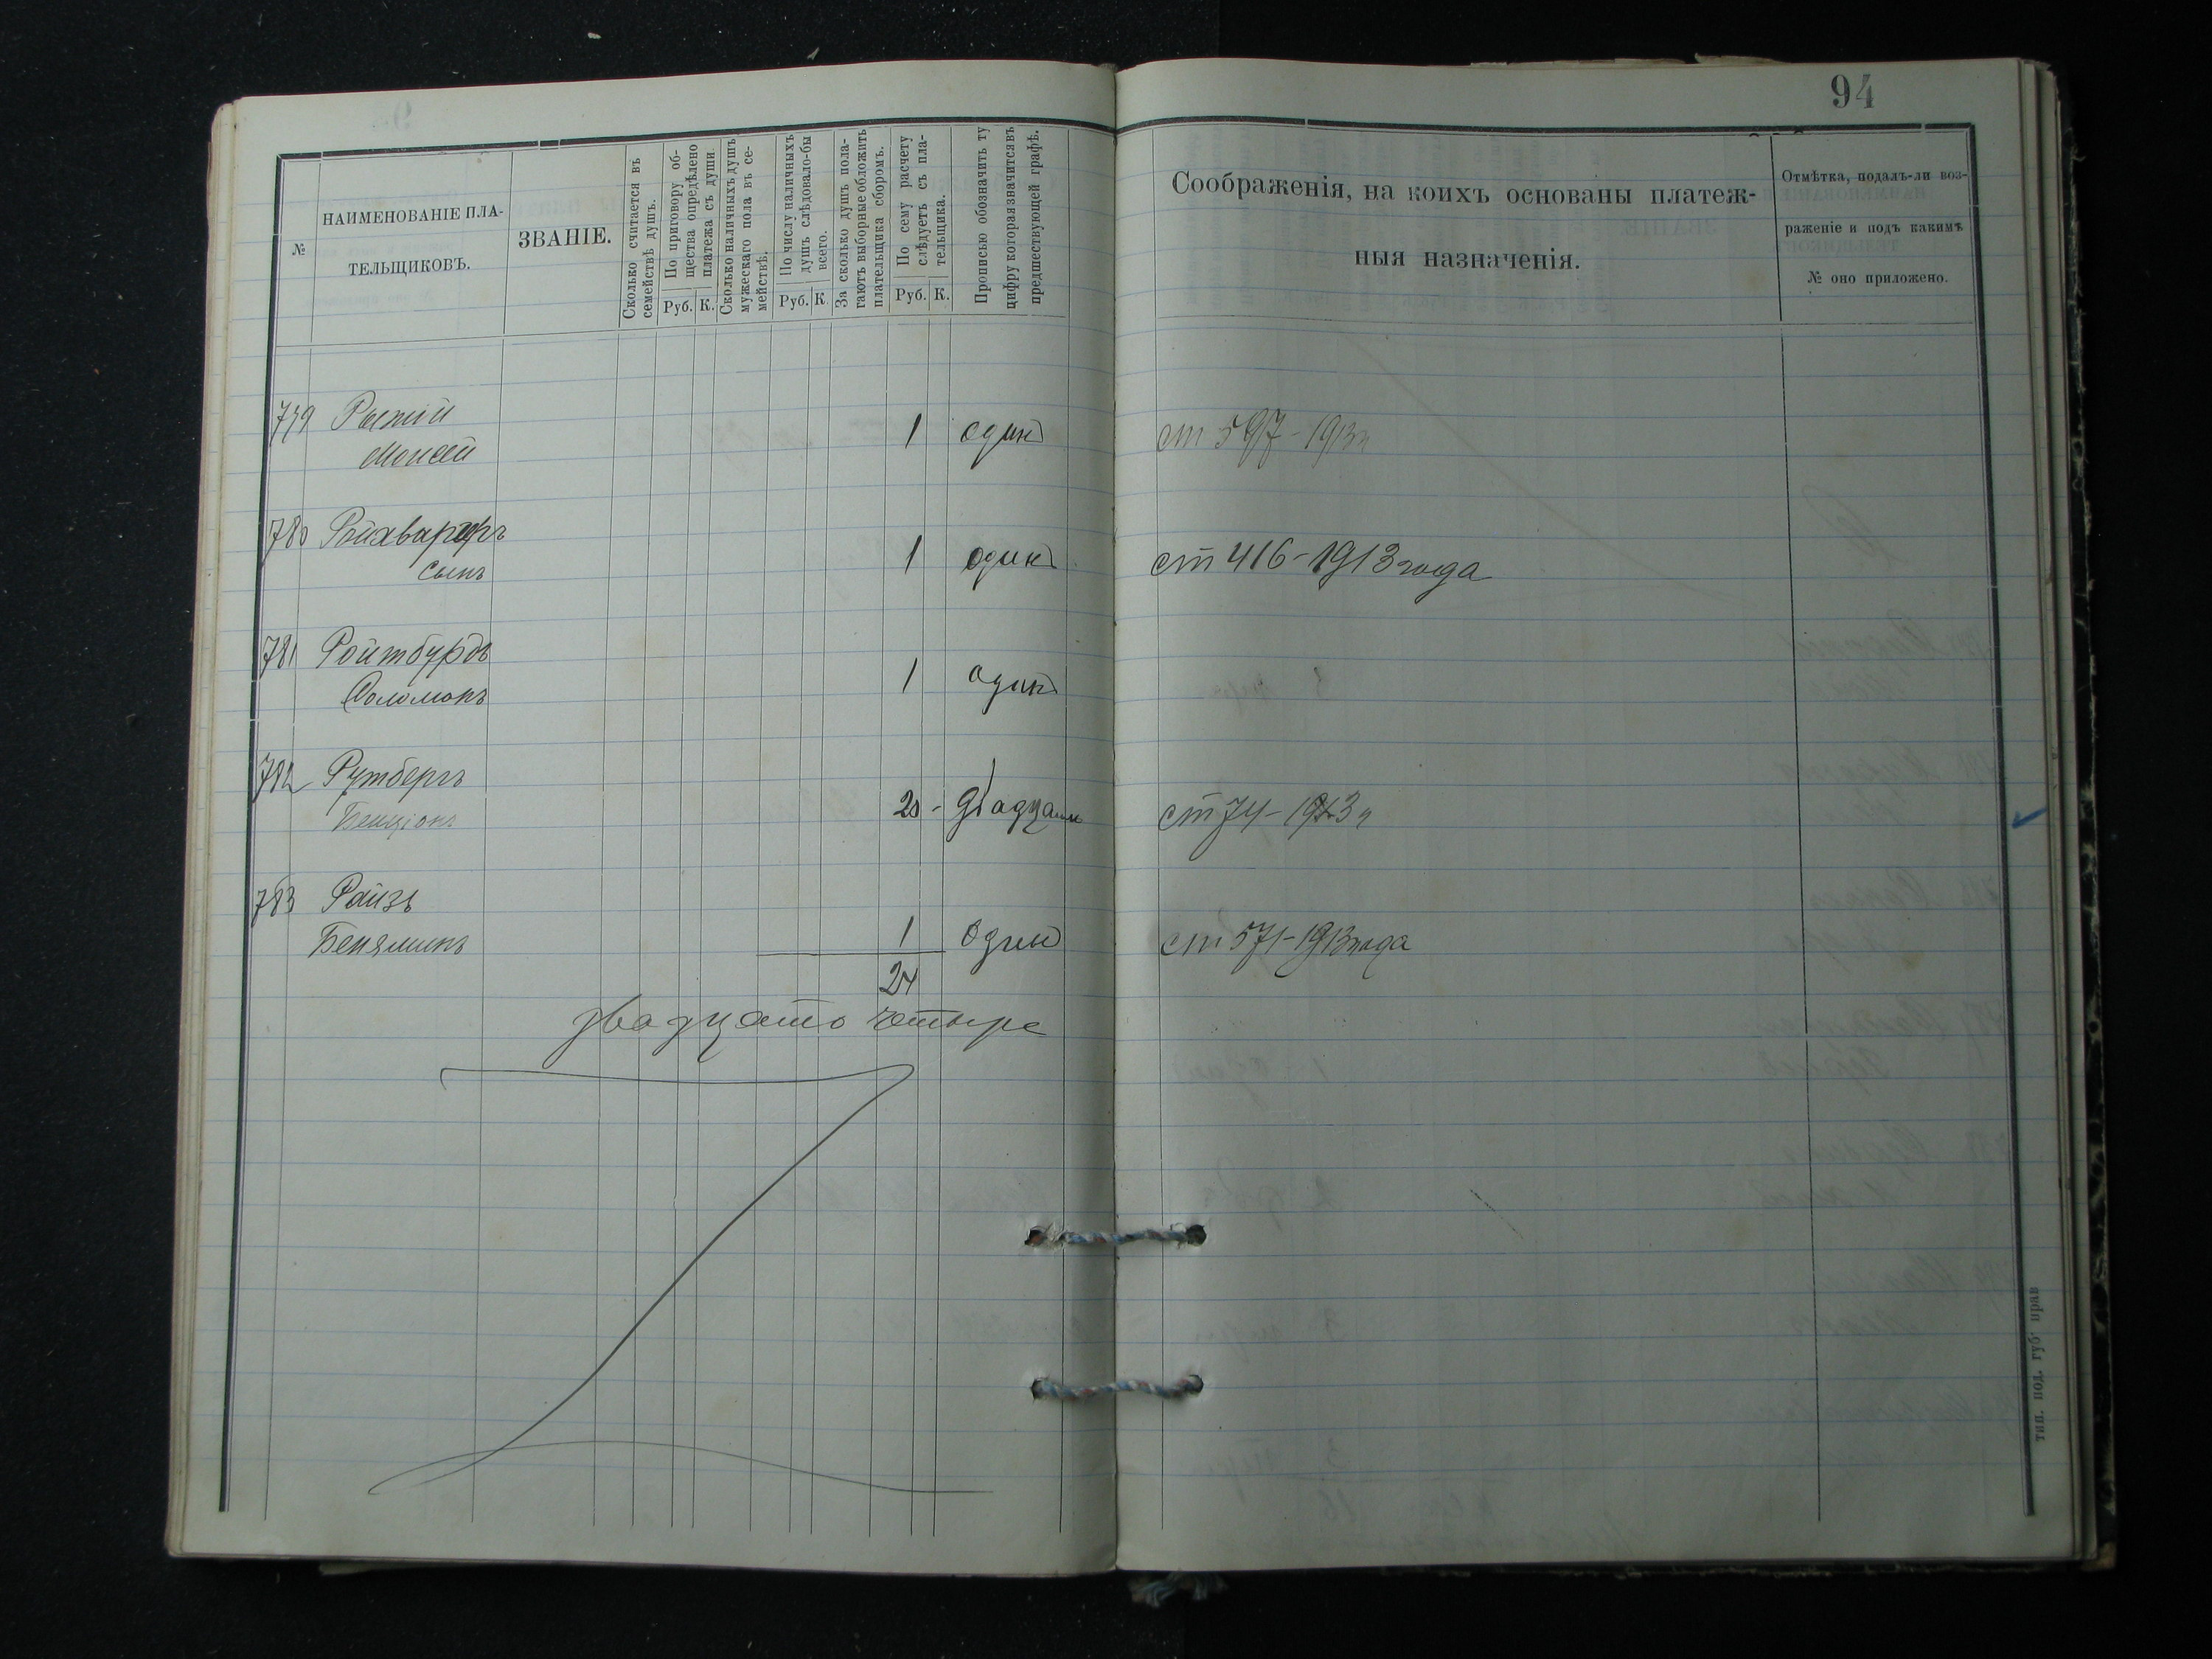 94
№
НАИМЕНОВАНІЕ ПЛА-
ТЕЛЬЩИКОВЪ.
ЗВАНІЕ.
Сколько считается въ
семействѣ душъ.
По приговору об-
щества опредѣлено
платежа съ души
Руб. К.
Сколько наличныхъ душъ
мужескаго пола въ се-
мействѣ.
По числу наличныхъ
душъ слѣдовало-бы
всего.
Руб. К.
За сколько душъ пола-
гаютъ выборные обложить
плательщика сборомъ.
По сему расчету
слѣдуетъ съ пла-
тельщика.
Руб. К.
Прописью обозначить ту
цифру которая значится въ
предшествующей графѣ.
Соображенія, на коихъ основаны платеж-
ныя назначенія.
Отмѣтка, подалъ-ли воз-
раженіе и подъ какимъ
№ оно приложено.
779 Рыжій
Моисей 1 одинъ ст 597-1913г
780
сынъ 1 одинъ ст 416-1913 года
781 Ройтбурдъ
Соломонъ 1 одинъ
782 Рутбергъ
Бенціонъ 20 - двадцать ст 74-1913г
783 Райзъ
Бенямин 1 одинъ ст 571-1913 года
24
двадцать четыре
тип. под. губ. прав